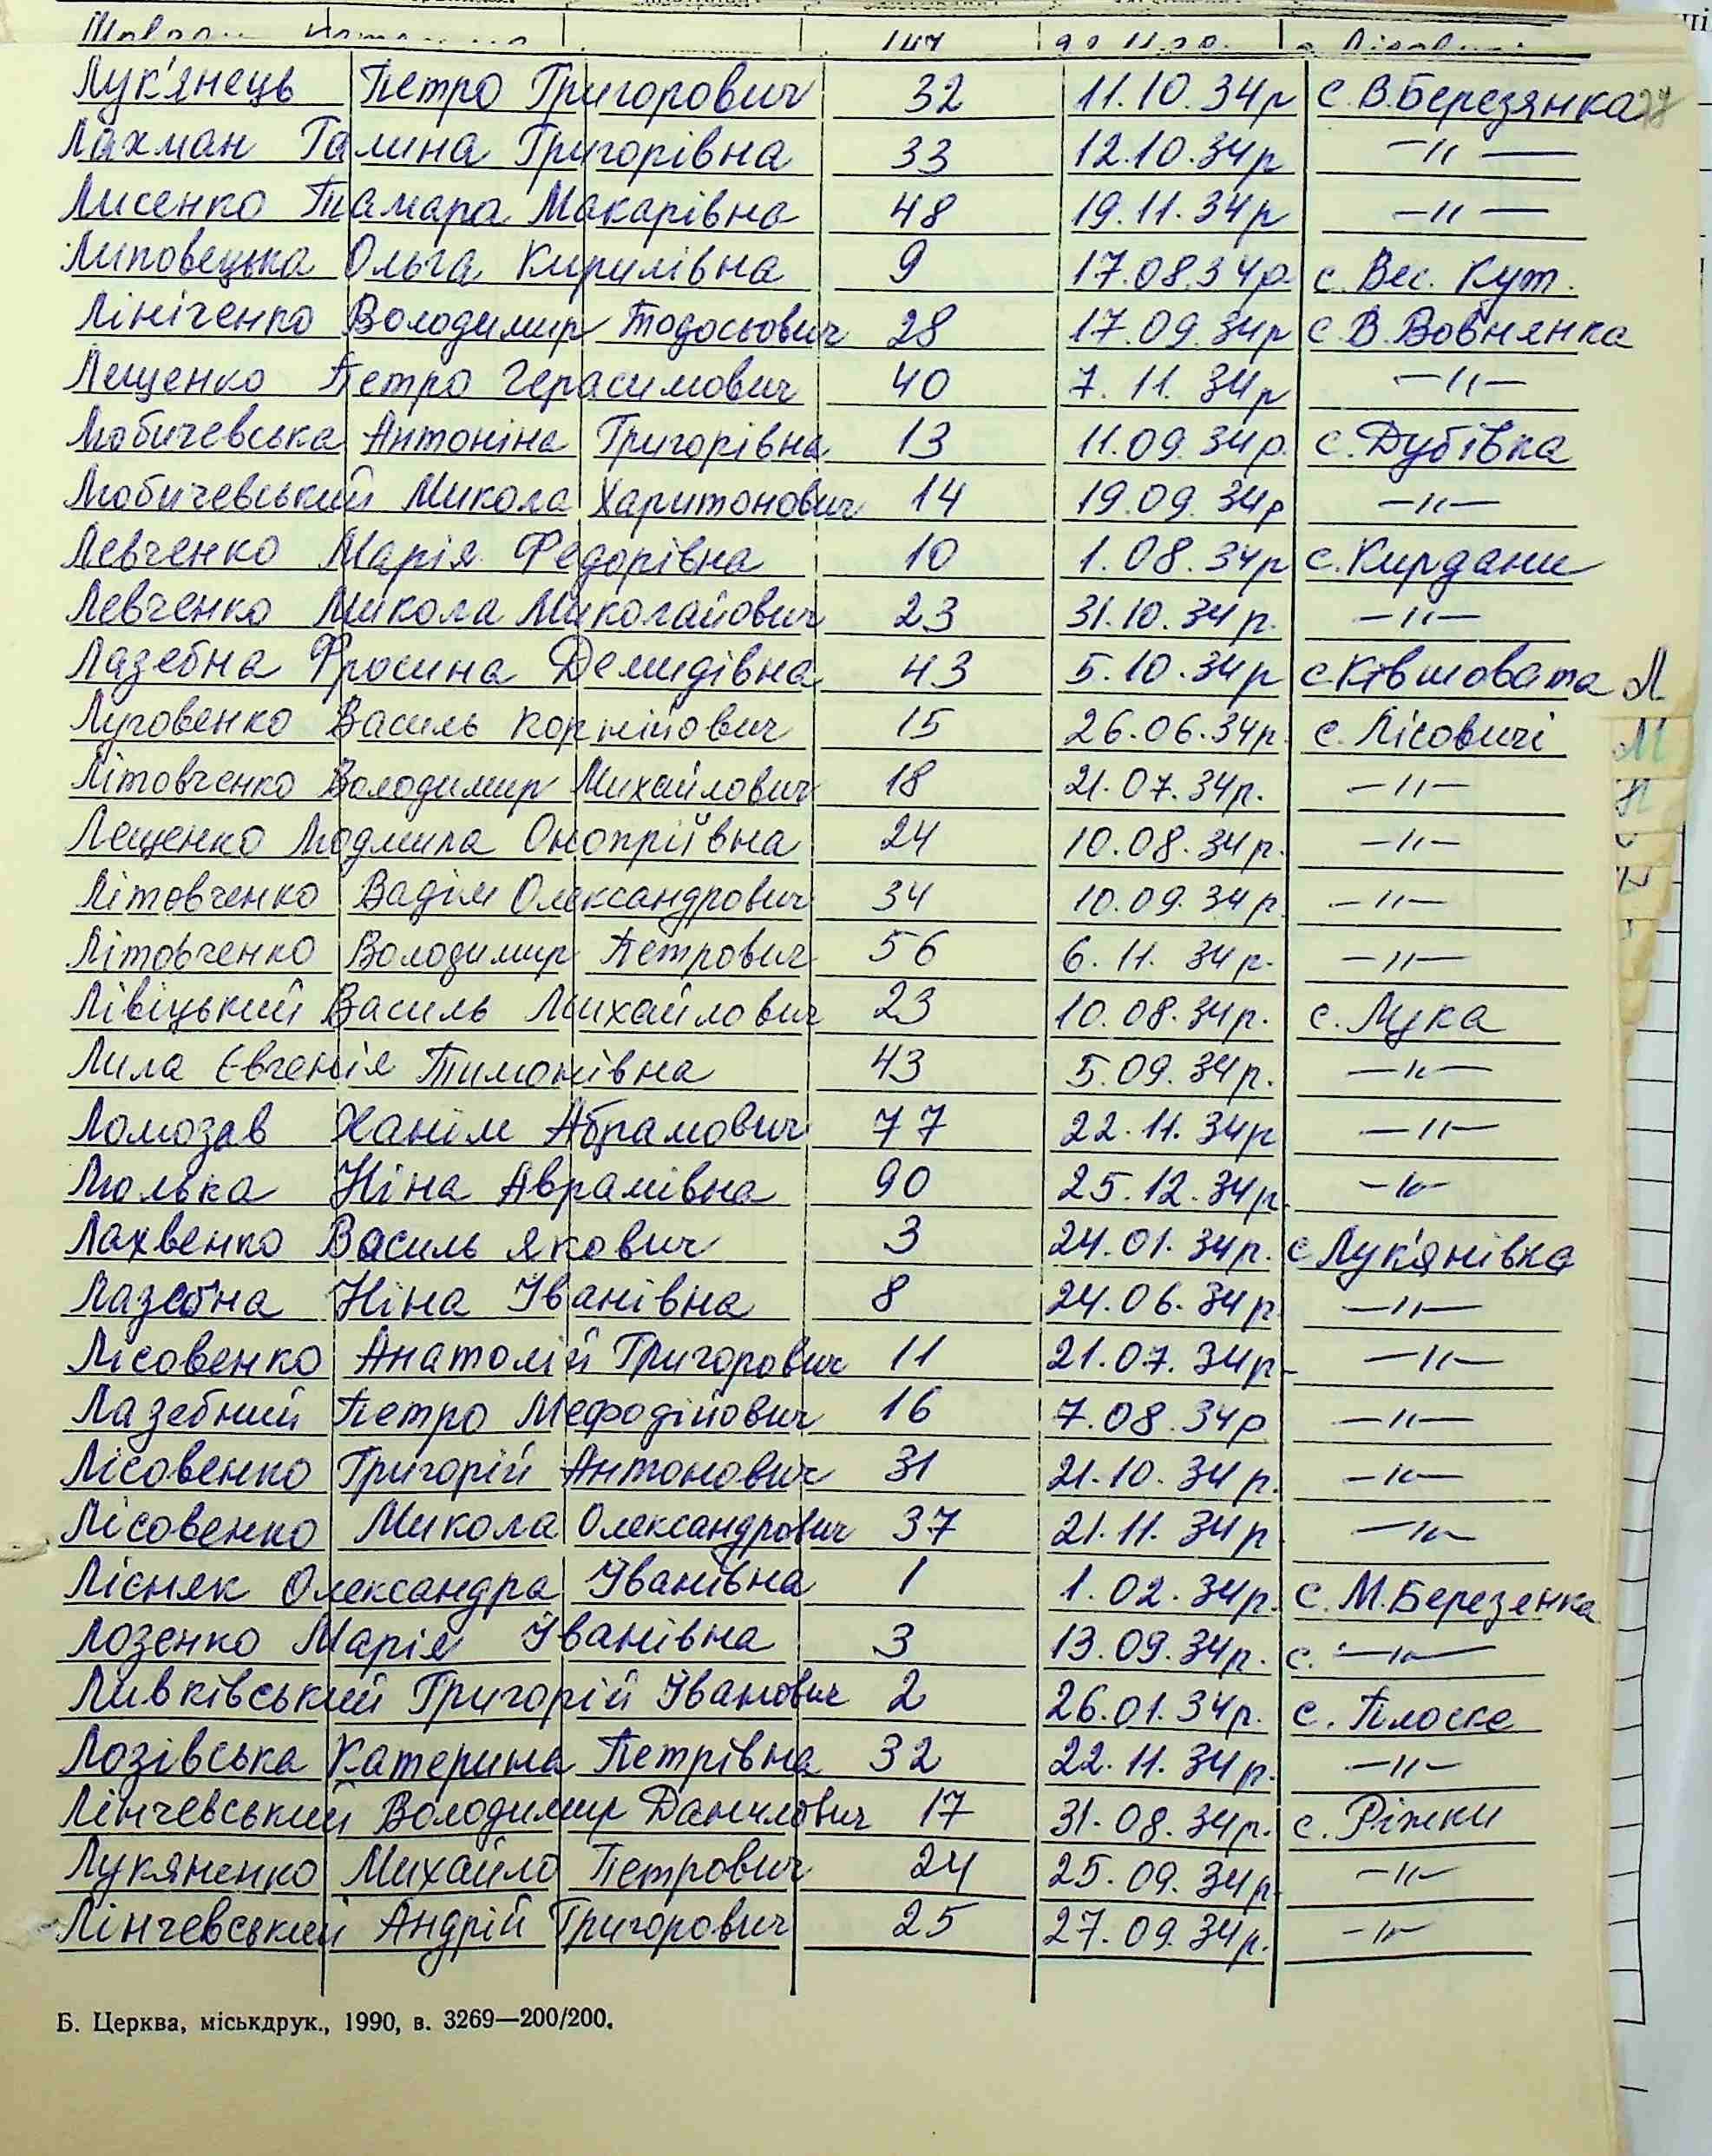 147
Лук'янець Петро Григорович 32 11.10.34р с.В.Березянка
Лахман Галина Григорівна 33 12.10.34р —"—
Лисенко Тамара Макарівна 48 19.11.34р —"—
Липовецька Ольга Кирилівна 9 17.08.34р. с. Вес. Кут.
Лініченко Володимир Тодосьович 28 17.09.34р с.В.Вовнянка
Лещенко Петро Герасимович 40 7.11.34р —"—
Любичевська Антоніна Григорівна 13 11.09.34р. с.Дубівка
Любичевський Микола Харитонович 14 19.09.34р —"—
Левченко Марія Федорівна 10 1.08.34р с.Кирдани
Левченко Микола Миколайович 23 31.10.34р. —"—
Лазебна Фросина Демидівна 43 5.10.34р с Ківшовата Л
Луговенко Василь Корнійович 15 26.06.34р. с. Лісовичі М
Літовченко Володимир Михайлович 18 21.07.34р. —"— Н
Лещенко Людмила Онопріївна 24 10.08.34р. —"—
Літовченко Вадім Олександрович 34 10.09.34р. —"—
Літовченко Володимир Петрович 56 6.11.34р. —"—
Лівіцький Василь Михайлович 23 10.08.34р. с. Лука
Лила Євгенія Тимонівна 43 5.09.34р. —"—
Ломозав Ханім Абрамович 77 22.11.34р —"—
Люлька Ніна Аврамівна 90 25.12.34р. —"—
Лахвенко Василь Якович 3 24.01.34р. с Лук'янівка
Лазебна Ніна Іванівна 8 24.06.34р —"—
Лісовенко Анатолій Григорович 11 21.07.34р —"—
Лазебний Петро Мефодійович 16 7.08.34р —"—
Лісовенко Григорій Антонович 31 21.10.34р. —"—
Лісовенко Микола Олександрович 37 21.11.34р —"—
Лісняк Олександра Іванівна 1 1.02.34р. с. М.Березенка
Лозенко Марія Іванівна 3 13.09.34р. с. —"—
Ливківський Григорій Іванович 2 26.01.34р. с. Плоске
Лозівська Катерина Петрівна 32 22.11.34р. —"—
Лінчевський Володимир Данилович 17 31.08.34р. с. Ріжки
Лукяненко Михайло Петрович 24 25.09.34р. —"—
Лінчевський Андрій Григорович 25 27.09.34р. —"—
Б. Церква, міськдрук., 1990, в. 3269—200/200.